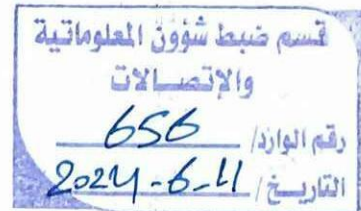 قسم ضبط شؤون المعلوماتية
والإتصالات
رقم الوارد/ 656
التاريخ / 2024-6-11